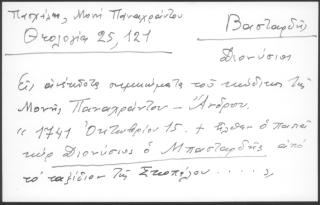 Πασχάλης, Μονή Παναχράντου
Θεολογία 25, 121
Βασταρδής
Διονύσιος
Εἰς ἀνέκδοτα σημειώματα τοῦ κώδικος τῆς
Μονῆς Παναχράντου – Ἄνδρου.
« 1741 Ὀκτωβρίου 15. + ἦλθεν ὁ παπᾶ
κὺρ Διονύσιος ὁ Μπασταρδῆς ἀπὸ
τὸ ταξίδιον τῆς Σκοπέλου . . . . . »